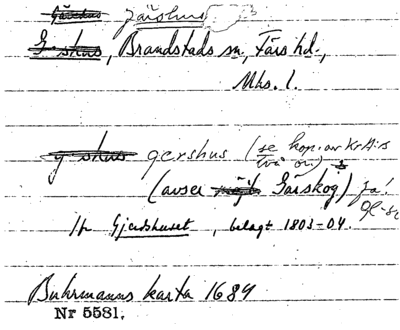 Järshus
G-shus, Brandstads sn, Färs hd.,
Mhs. 1.
g-shus gershus (se kop. av KrH:s
två ori)
(avser Gärskog) ja!
Jfr Gjerdshuset, belagt 1803-04.
Buhrmanns karta 1684
Nr 5581.